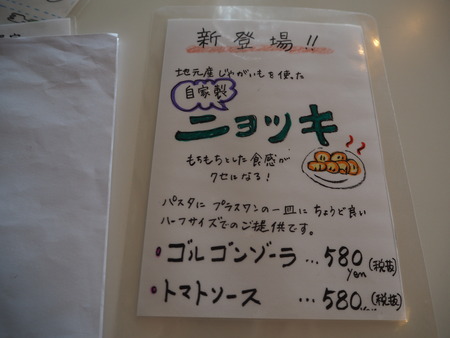 新登場!!
地元産じゃがいもを使った
自家製
ニョッキ
もちもちとした食感が
クセになる!
パスタに プラスワンの一皿に ちょうど良い
ハーフサイズでのご提供です。
・ゴルゴンゾーラ…580yen(税抜)
・トマトソース …580(税抜)